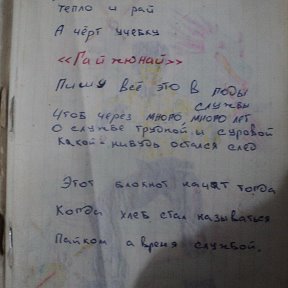 тепло и рай
А чёрт учебку
«Гайжюнай»
Пишу всё это в годы
службы
Чтоб через много, много лет
О службе трудной и суровой
Какой-нибудь остался след
Этот блокнот начат тогда
Когда хлеб стал называться
Пайком а время службой.